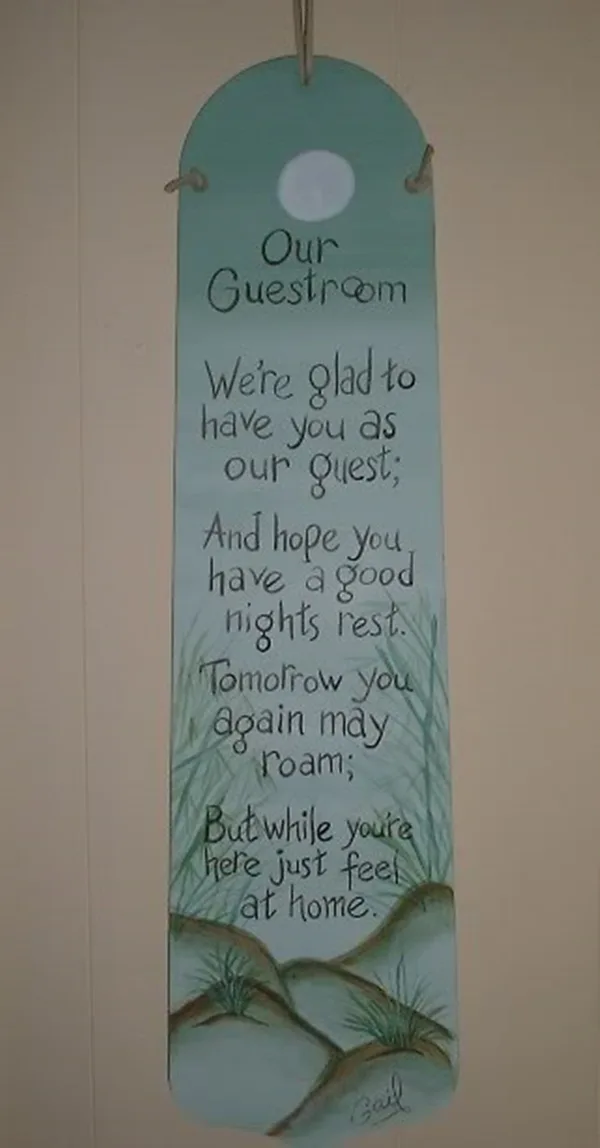 Our
Guestroom
We're glad to
have you as
our guest;
And hope you
have a good
nights rest.
Tomorrow you
again may
roam;
But while you're
here just feel
at home.
Gail